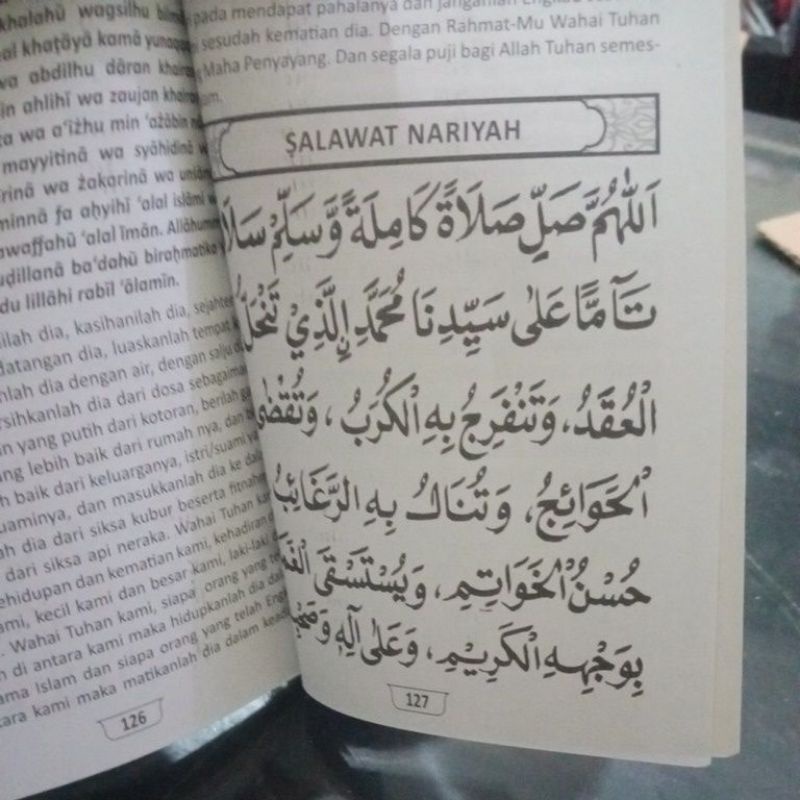 khalahū wagsilhu
al khaṭāyā kamā
wa abdilhu dāran
in ahlihī wa zaujan
ta wa a'iżhu min 'ażābin
mayyitinā wa syāhidinā
wa żakarinā wa
minnā fa aḥyihī 'alal islāmi
awaffahū 'alal īmān. Allāhumma
uḍillanā ba'dahū biraḥmatika
du lillāhi rabil 'ālamīn.
ilah dia, kasihanilah dia,
datangan dia, luaskanlah tempat
nlah dia dengan air, dengan salju
rsihkanlah dia dari dosa sebagaimana
n yang putih dari kotoran, berilah
ng lebih baik dari rumah nya, dan
h baik dari keluarganya, istri/suami
uaminya, dan masukkanlah dia ke
ah dia dari siksa kubur beserta
dari siksa api neraka. Wahai Tuhan
ehidupan dan kematian kami, kehadiran
ami, kecil kami dan besar kami, laki-laki
. Wahai Tuhan kami, siapa orang yang
di antara kami maka hidupkanlah dia
ama Islam dan siapa orang yang telah
tara kami maka matikanlah dia dalam
126
pada mendapat pahalanya dan janganlah
sesudah kematian dia. Dengan Rahmat-Mu Wahai Tuhan
Maha Penyayang. Dan segala puji bagi Allah Tuhan semes-
am.
ṢALAWAT NARIYAH
اَللّٰهُمَّ صَلِّ صَلَاةً كَامِلَةً وَّسَلِّمْ سَلَا
تَآمًّا عَلٰى سَيِّدِنَا مُحَمَّدٍ اِلَّذِيْ تَنْحَلُّ
الْعُقَدُ، وَتَنْفَرِجُ بِهِ الْكُرَبُ، وَتُقْضٰى
الْحَوَائِجُ، وَتُنَالُ بِهِ الرَّغَائِبُ
حُسْنُ الْخَوَاتِمِ، وَيُسْتَسْقَى
بِوَجْهِهِ الْكَرِيْمِ، وَعَلٰى آلِهِ
127